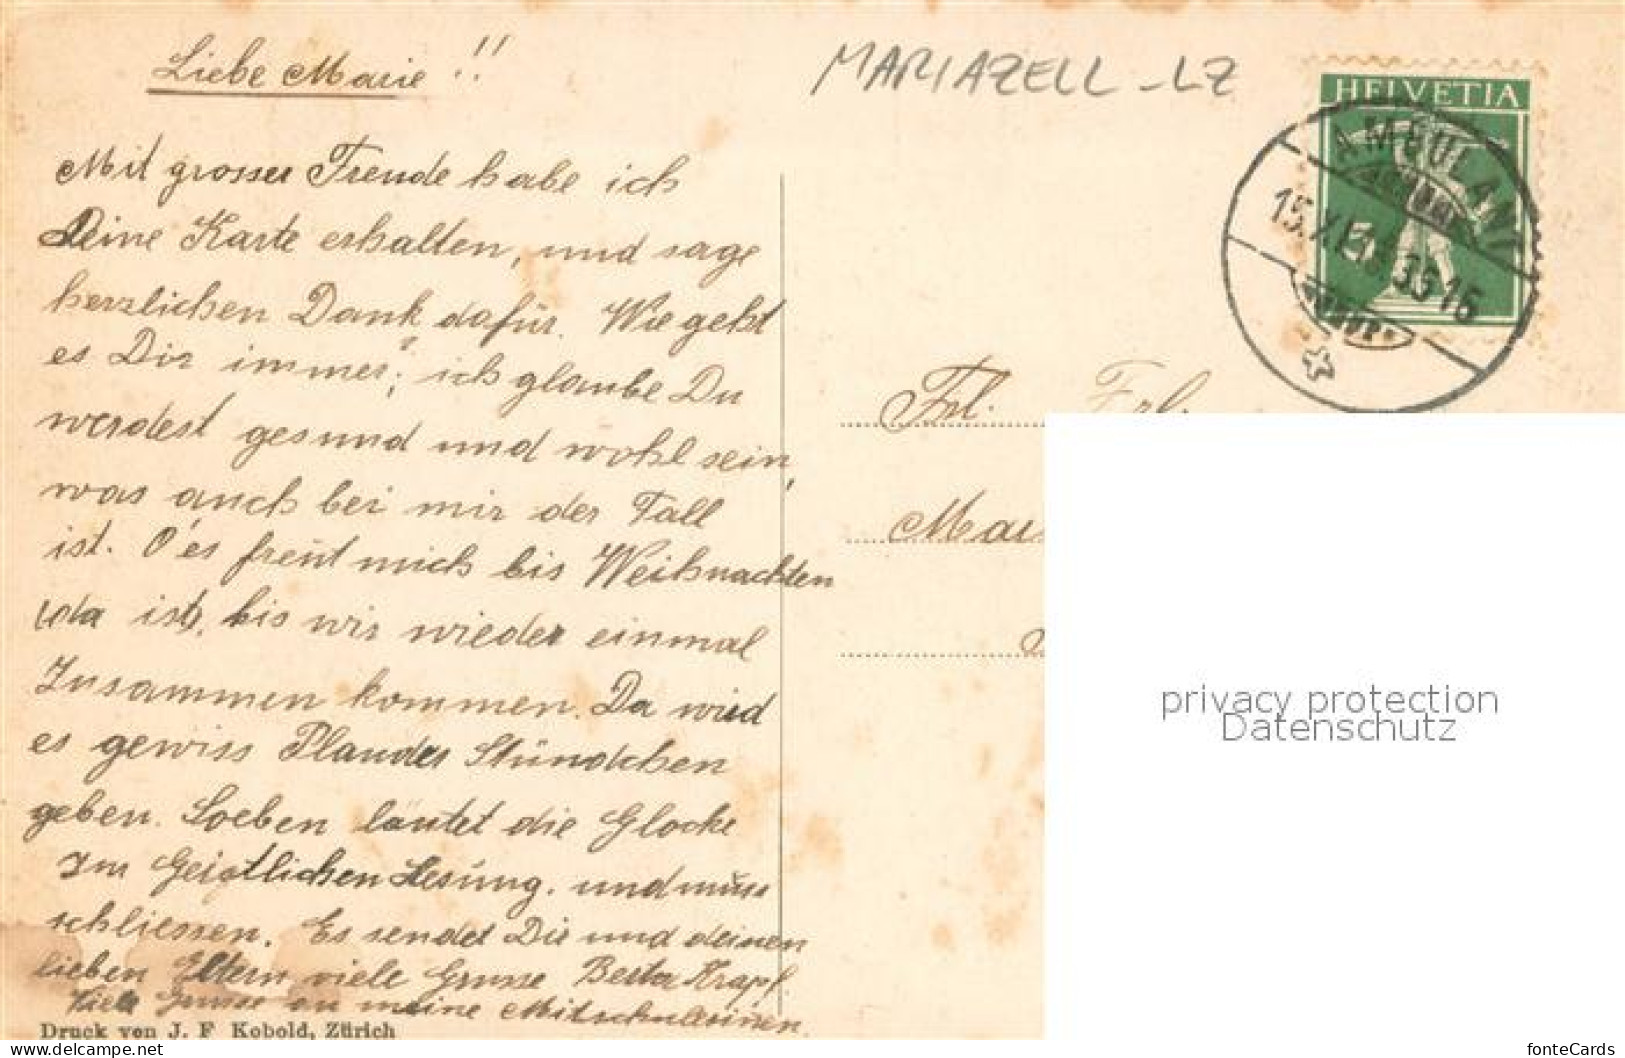 Liebe Marie !!
Mit grosser Freude habe ich
Deine Karte erhalten, und sage
herzlichen Dank dafür. Wie geht
es Dir immer; ich glaube Du
werdest gesund und wohl sein,
was auch bei mir der Fall
ist. O es freut mich bis Weihnachten
da ist, bis wir wieder einmal
Zusammen kommen. Da wird
es gewiss Plauder Stündchen
geben. Soeben läutet die Glocke
Im Geistlichen Lesung. und muss
schliessen. Es sendet Dir und deinen
lieben Eltern viele Grüsse Berta Krapf.
Viele Grüsse an meine Mitschulerinen.
Druck von J. F Kobold, Zürich
MARIAZELL - LZ
HELVETIA
5
AMBULANT
15.XI.
Frl. Frl.
privacy protection
Datenschutz
fonteCards